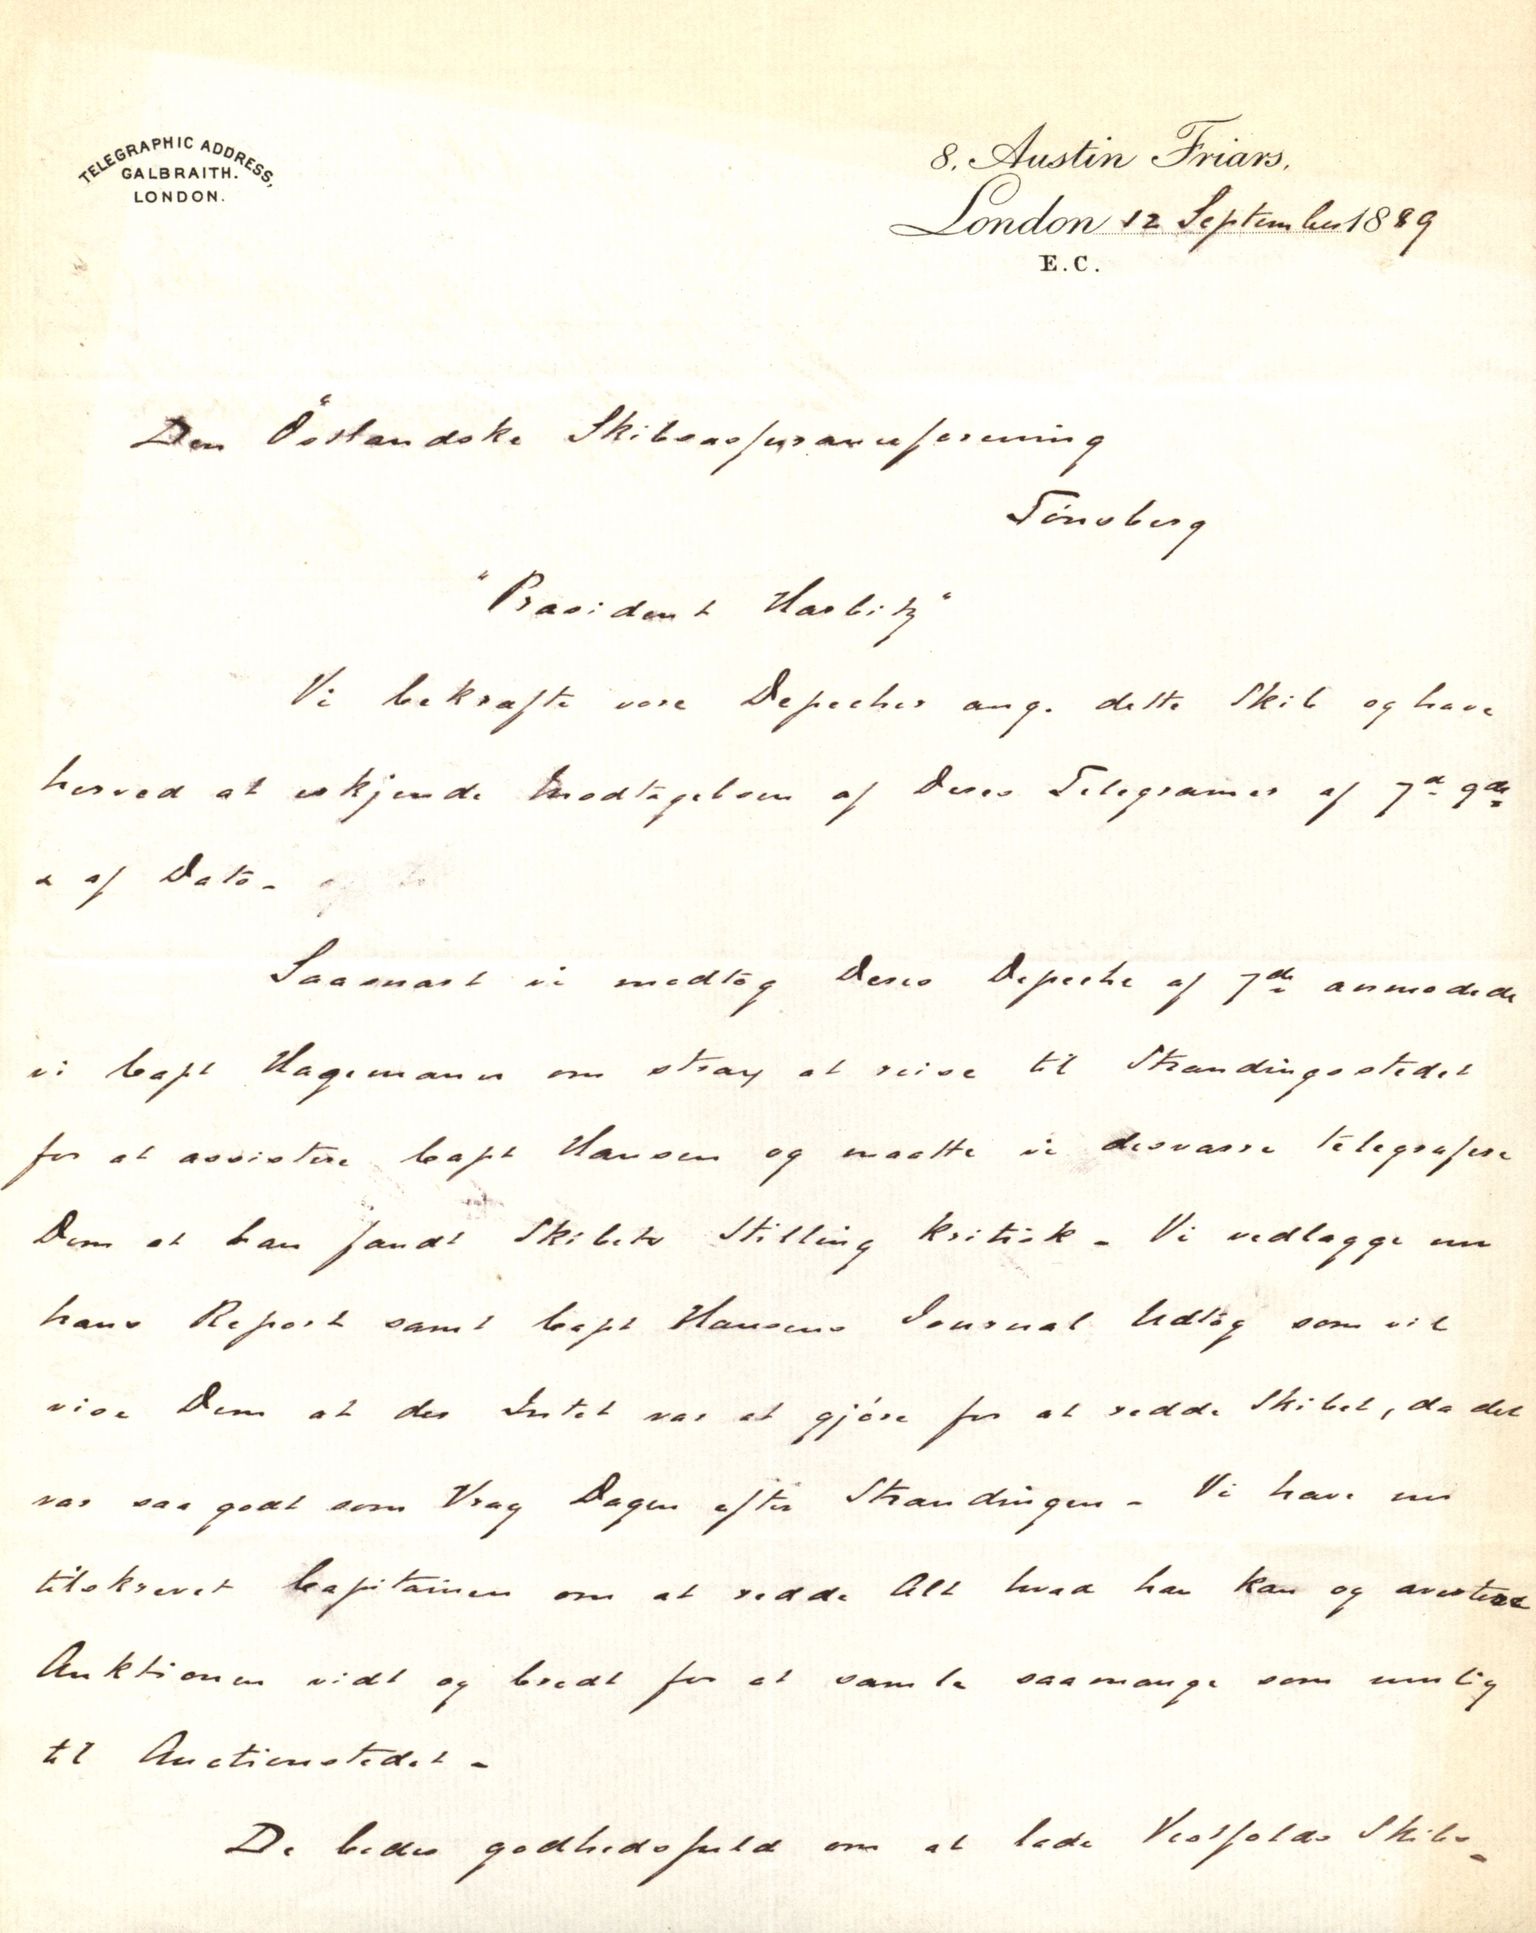 TELEGRAPHIC ADDRESS,
GALBRAITH.
LONDON.
8, Austin Friars,
London 12 September 1889
E.C.
Den Östlandske Skibsassuranceforening
Tönsberg
"Præsident Harbitz"
Vi bekræfte vore Depecher ang. dette Skib og have
herved at erkjende Modtagelsen af Deres Telegramer af 7d 9de
& af Dato -
Saasnart vi modtog Deres Depeche af 7de anmodede
vi Capt Hagemann om strax at reise til Strandingsstedet
for at assistere Capt Hansen og maatte vi desværre telegrafere
Dem at han fandt Skibets Stilling kritisk - Vi vedlægge nu
hans Report samt Capt Hansens Journal Udtog som vil
vise Dem at der Intet var at gjøre for at redde Skibet, da det
var saa godt som Vrag Dagen efter Strandingen - Vi have nu
tilskrevet Capitainen om at redde Alt hvad han kan og avertere
Auktionen vidt og bredt for at samle saamange som mulig
til Auctionstedet -
De bedes godhedsfuld om at lade Vestfolds Skibs-